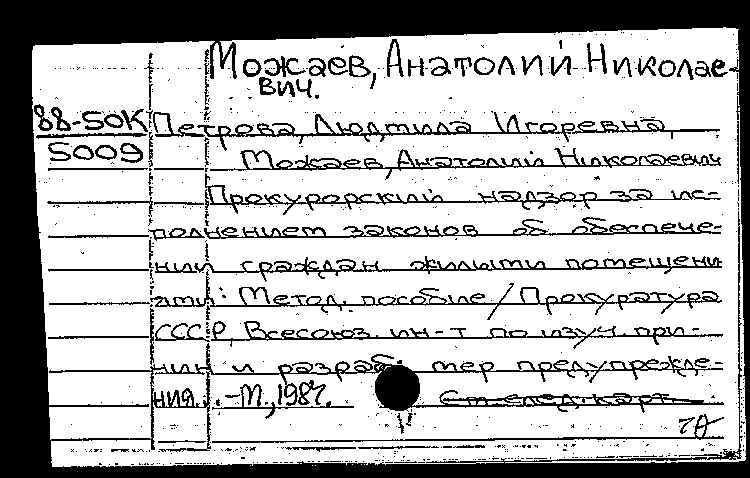 Можаев, Анатолий Николае-
вич.
88-50К Петрова, Людмила Игоревна,
5009 Можаев, Анатолий Николаевич
Прокурорский надзор за ис-
полнением законов об обеспече-
нии граждан жилыми помещени
ями: Метод. пособие / Прокуратура
СССР, Всесоюз. ин-т по изуч. при-
чин и разраб. мер предупрежде-
ния. .-М., 1987.
См. след. карт.